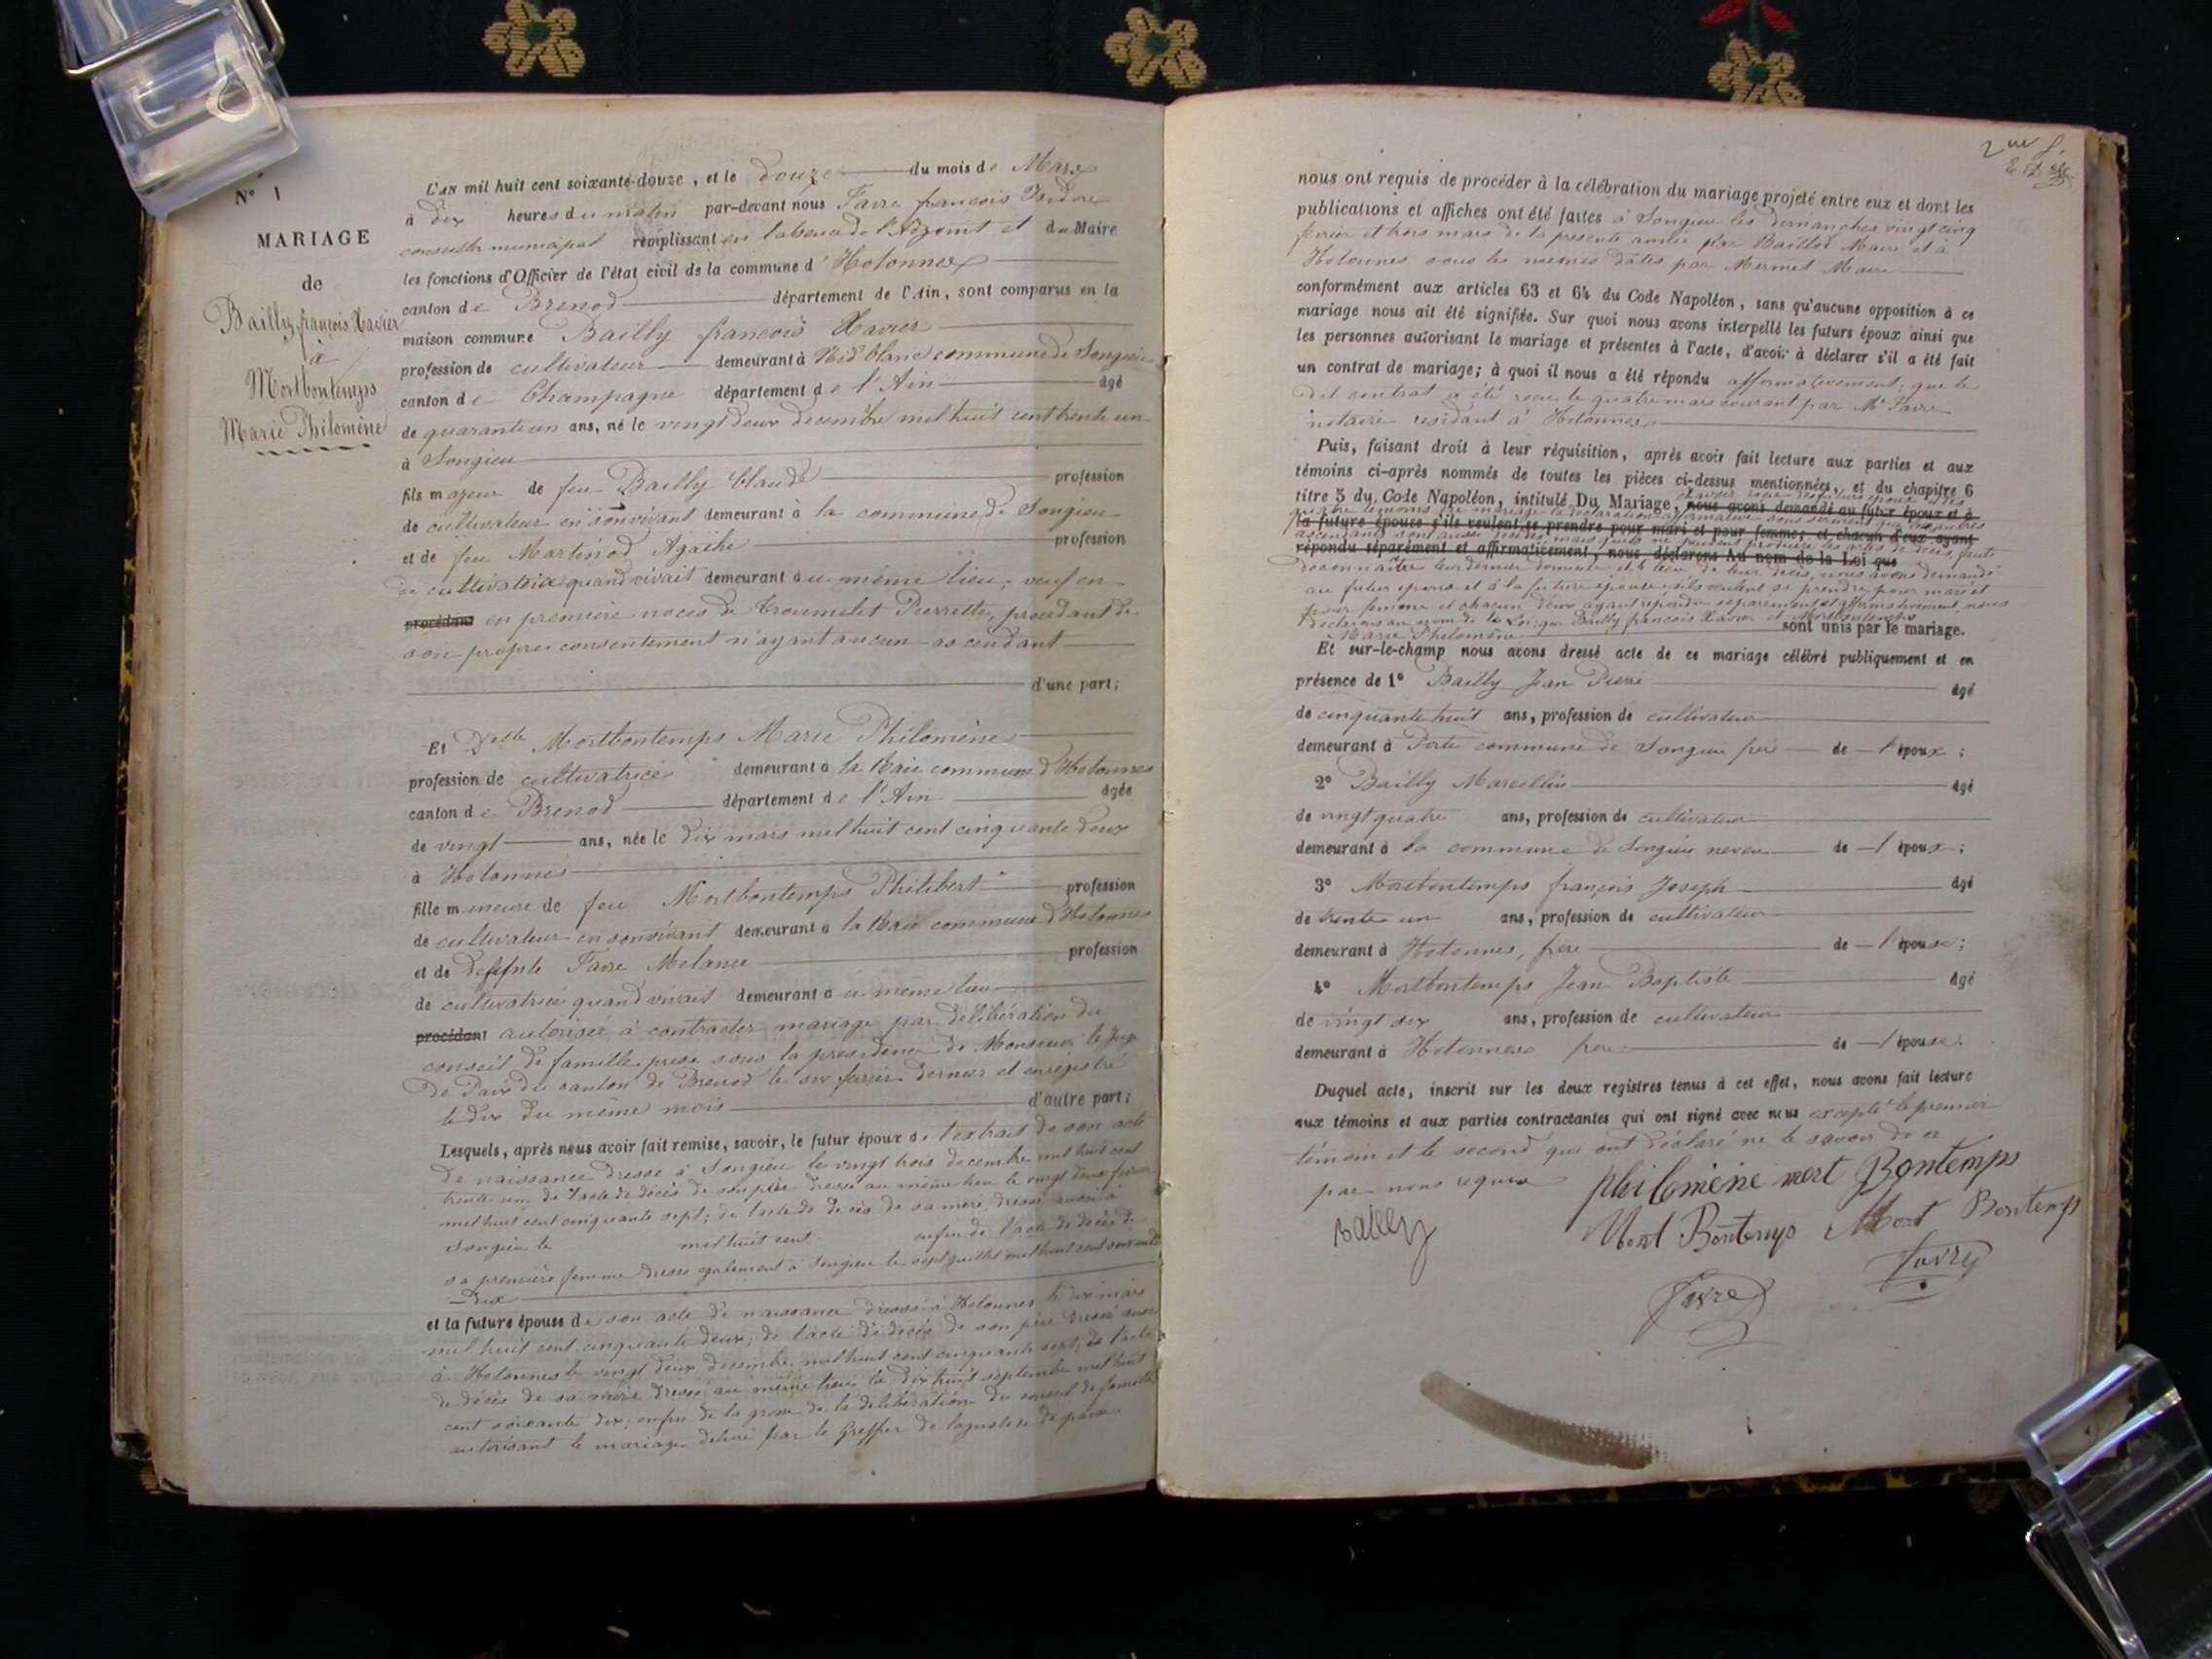 N° 1
MARIAGE
de
Bailly françois Xavier
à
Mortbontemps
Marie Philomène
L'AN mil huit cent soixante-douze, et le douze du mois de Mars
à dix heures du matin par-devant nous Favre françois Isidore
conseiller municipal remplissant en l'absence de l'Adjoint et du Maire
les fonctions d'Officier de l'état civil de la commune d'Hotonnes
canton de Brenod département de l'Ain, sont comparus en la
maison commune Bailly françois Xavier
profession de cultivateur demeurant à blanc commune de Songieu
canton de Champagne département de l'Ain âgé
de quarante un ans, né le vingt deux decembre mil huit cent trente un
à Songieu
fils majeur de feu Bailly Claude profession
de cultivateur en son vivant demeurant à la commune de Songieu
et de feu Martinod Agathe profession
de cultivatrice quand vivait demeurant au même lieu, veuf en
procédant en première noces de Troumelet Pierrette, procedant de
son propre consentement n'ayant aucun ascendant
d'une part;
Et Delle Mortbontemps Marie Philomène
profession de cultivatrice demeurant à la commune d'Hotonnes
canton de Brenod département de l'Ain âgée
de vingt ans, née le dix mars mil huit cent cinquante deux
à Hotonnes
fille mineure de feu Mortbontemps Philibert profession
de cultivateur en son vivant demeurant à la commune d'Hotonnes
et de defunte Favre Melanie profession
de cultivatrice quand vivait demeurant au meme lieu
procédant autorisée à contracter mariage par délibération du
conseil de famille prise sous la presidence de Monsieur le Juge
de Paix du canton de Brenod le six fevrier dernier et enregistré
le dix du même mois d'autre part;
Lesquels, après nous avoir fait remise, savoir, le futur époux de l'extrait de son acte
de naissance dressé à Songieu le vingt trois decembre mil huit cent
trente un, de l'acte de décès de son père dressé au même lieu le vingt deux fevrier
mil huit cent cinquante sept; de l'acte de decès de sa mère, dressé aussi à
Songieu le mil huit cent enfin de l'acte de décès de
sa première femme dressé egalement à Songieu le sept juillet mil huit cent soixante
dix
et la future épouse de son acte de naissance dressé à Hotonnes le dix mars
mil huit cent cinquante deux; de l'acte de décès de son père dressé aussi
à Hotonnes le vingt deux decembre mil huit cent cinquante sept, de l'acte
de décès de sa mère dressé au même lieu le dix huit septembre mil huit
cent soixante dix; enfin de la grosse de la délibération du conseil de famille
autorisant le mariage délivré par le Greffier de la justice de paix
nous ont requis de procéder à la célébration du mariage projeté entre eux et dont les
publications et affiches ont été faites à Songieu les dimanches vingt cinq
fevrier et trois mars de la presente année par Baillod Maire et à
Hotonnes sous les mêmes dates par Mermet Maire
conformément aux articles 63 et 64 du Code Napoléon, sans qu'aucune opposition à ce
mariage nous ait été signifiée. Sur quoi nous avons interpellé les futurs époux ainsi que
les personnes autorisant le mariage et présentes à l'acte, d'avoir à déclarer s'il a été fait
un contrat de mariage; à quoi il nous a été répondu affirmativement; que le
dit contrat a été reçu le quatre mars courant par Me Favre
notaire residant à Hotonnes
Puis, faisant droit à leur réquisition, après avoir fait lecture aux parties et aux
témoins ci-après nommés de toutes les pièces ci-dessus mentionnées, et du chapitre 6
titre 5 du Code Napoléon, intitulé Du Mariage, nous avons demandé au futur époux et à
la future épouse s'ils veulent se prendre pour mari et pour femme; et chacun d'eux ayant
répondu séparément et affirmativement, nous déclarons Au nom de la Loi que
quatre temoins du mariage la déclaration affirmative sous serment que les autres
ascendants sont aussi decedés mais qu'ils ne peuvent produire les actes de décès, faute
de connaître leur dernier domicile et le lieu de leur décès, nous avons demandé
au futur epoux et à la future épouse s'ils veulent se prendre pour mari et
pour femme et chacun d'eux ayant repondu séparément et affirmativement, nous
declarons au nom de la Loi que Bailly françois Xavier et Mortbontemps
Marie Philomène sont unis par le mariage.
Et sur-le-champ nous avons dressé acte de ce mariage célébré publiquement et en
présence de 1° Bailly Jean Pierre âgé
de cinquante huit ans, profession de cultivateur
demeurant à Porte commune de Songieu frère de l'époux;
2° Bailly Marcellin âgé
de vingt quatre ans, profession de cultivateur
demeurant à la commune de Songieu neveu de l'époux;
3° Mortbontemps françois Joseph âgé
de trente un ans, profession de cultivateur
demeurant à Hotonnes, frere de l'épouse;
4° Mortbontemps Jean Baptiste âgé
de vingt six ans, profession de cultivateur
demeurant à Hotonnes frere de l'épouse.
Duquel acte, inscrit sur les deux registres tenus à cet effet, nous avons fait lecture
aux témoins et aux parties contractantes qui ont signé avec nous excepté le premier
témoin et le second qui ont déclaré ne le savoir de ce
par nous requis
philomène mort Bontemps
Bailly
Mort Bontemps Mort Bontemps
Favre
Favre